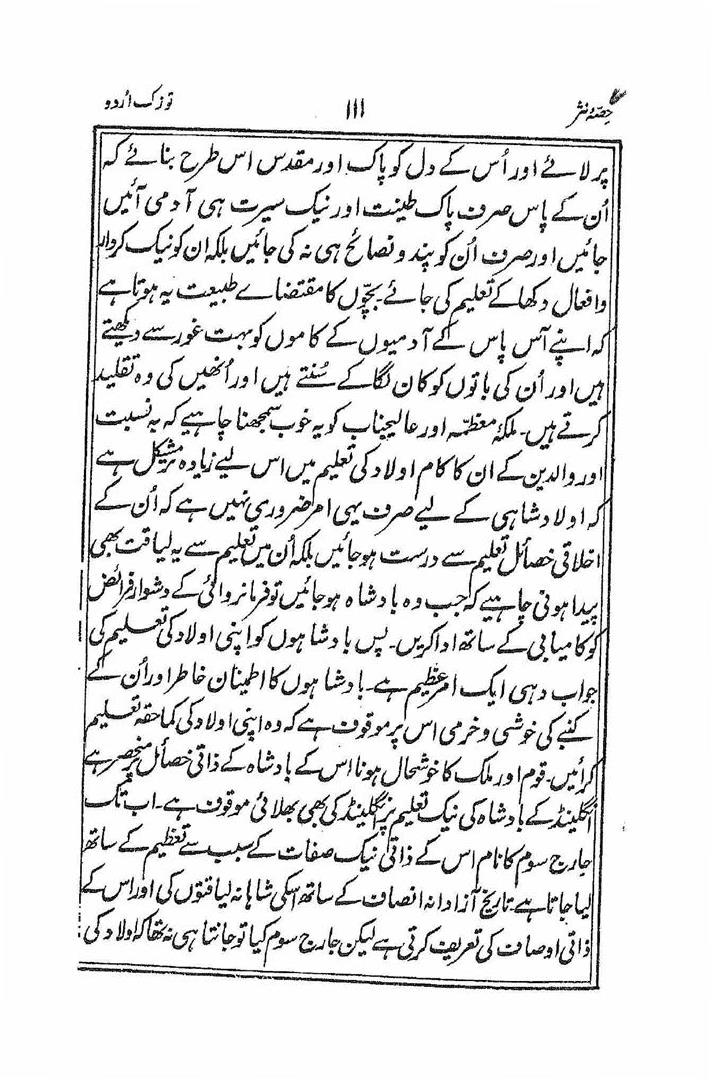 حصۂ نثر ۱۱۱ توزک اُردو
پر لائے اور اُس کے دل کو پاک اور مقدس اس طرح بنائے کہ
اُن کے پاس صرف پاک طینت اور نیک سیرت ہی آدمی آئیں
جائیں اور صرف اُن کو پند و نصائح ہی نہ کی جائیں بلکہ ان کو نیک کردار
و افعال دکھا کے تعلیم کی جائے۔ بچّوں کا مقتضاے طبیعت یہ ہوتا ہے
کہ اپنے آس پاس کے آدمیوں کے کاموں کو بہت غور سے دیکھتے
ہیں اور اُن کی باتوں کو کان لگا کے سُنتے ہیں اور اُنھیں کی وہ تقلید
کرتے ہیں۔ ملکۂ معظمہ اور عالیجناب کو یہ خوب سمجھنا چاہیے کہ بہ نسبت
اور والدین کے ان کا کام اولاد کی تعلیم میں اس لیے زیادہ تر مشکل ہے
کہ اولاد شاہی کے لیے صرف یہی امر ضروری نہیں ہے کہ اُن کے
اخلاقی خصائل تعلیم سے درست ہو جائیں بلکہ اُن میں تعلیم سے یہ لیاقت بھی
پیدا ہونی چاہیے کہ جب وہ بادشاہ ہو جائیں تو فرمانروائی کے دشوار فرائض
کو کامیابی کے ساتھ ادا کریں۔ پس بادشاہوں کو اپنی اولاد کی تعلیم کی
جواب دہی ایک امر عظیم ہے۔ بادشاہوں کا اطمینان خاطر اور اُن کے
کنبے کی خوشی و خرمی اس پر موقوف ہے کہ وہ اپنی اولاد کی کماحقہ تعلیم
کرائیں۔ قوم اور ملک کا خوشحال ہونا اس کے بادشاہ کے ذاتی خصائل پر منحصر ہے
انگلینڈ کے بادشاہ کی نیک تعلیم پر انگلینڈ کی بھی بھلائی موقوف ہے۔ اب تک
جارج سوم کا نام اس کے ذاتی نیک صفات کے سبب سے تعظیم کے ساتھ
لیا جاتا ہے۔ تاریخ آزادانہ انصاف کے ساتھ اسکی شاہانہ لیاقتوں کی اور اس کے
ذاتی اوصاف کی تعریف کرتی ہے لیکن جارج سوم کیا تو جانتا ہی نہ تھا کہ اولاد کی